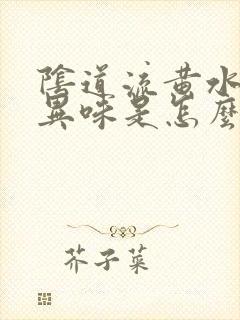 陰道流黃水
異味是怎麼
芥子菜